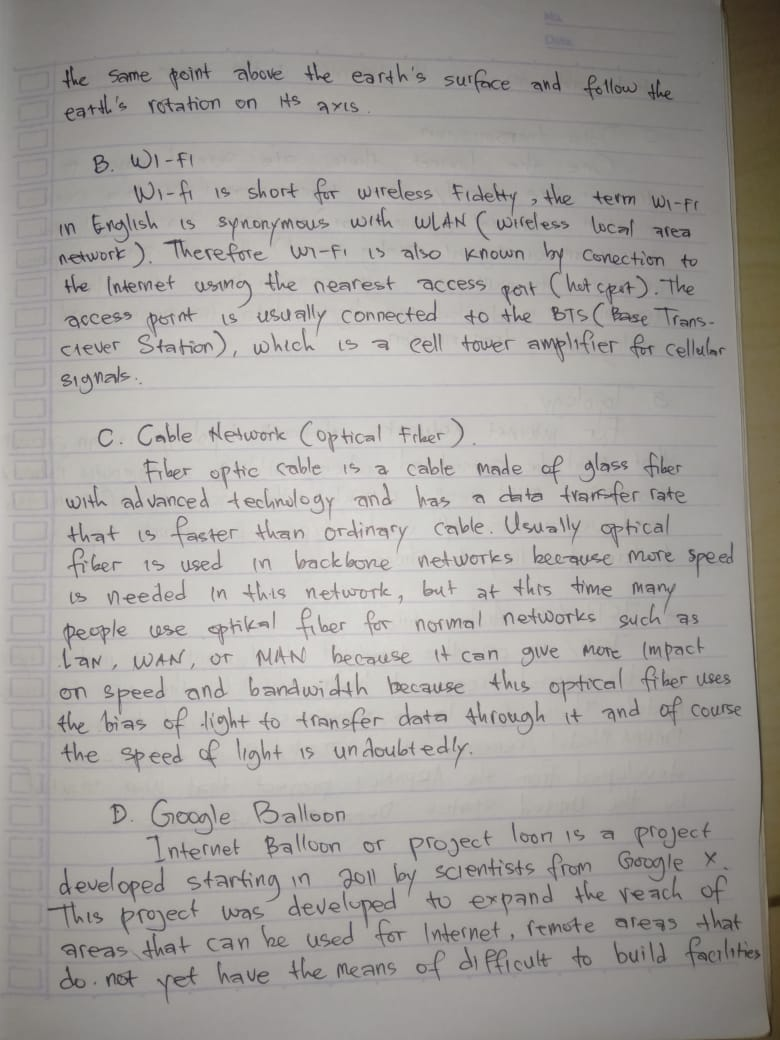 No.
Date.
the same point above the earth's surface and follow the
earth's rotation on its axis.
B. Wi-Fi
Wi-fi is short for wireless Fidelity, the term Wi-Fi
in English is synonymous with WLAN (wireless local area
network). Therefore Wi-Fi is also known by conection to
the Internet using the nearest access point (hot cpot). The
access point is usually connected to the BTS (Base Trans-
ciever Station), which is a cell tower amplifier for cellular
signals..
C. Cable Network (optical Fiber).
Fiber optic cable is a cable made of glass fiber
with advanced technology and has a data transfer rate
that is faster than ordinary cable. Usually optical
fiber is used in backbone networks because more speed
is needed in this network, but at this time many
people use optikal fiber for normal networks such as
Lan, WAN, or MAN because it can give more impact
on speed and bandwidth because this optical fiber uses
the bias of light to transfer data through it and of course
the speed of light is undoubtedly.
D. Google Balloon
Internet Balloon or project loon is a project
developed starting in 2011 by scientists from Google X.
This project was developed to expand the reach of
areas that can be used for Internet, remote areas that
do. not yet have the means of difficult to build facilities